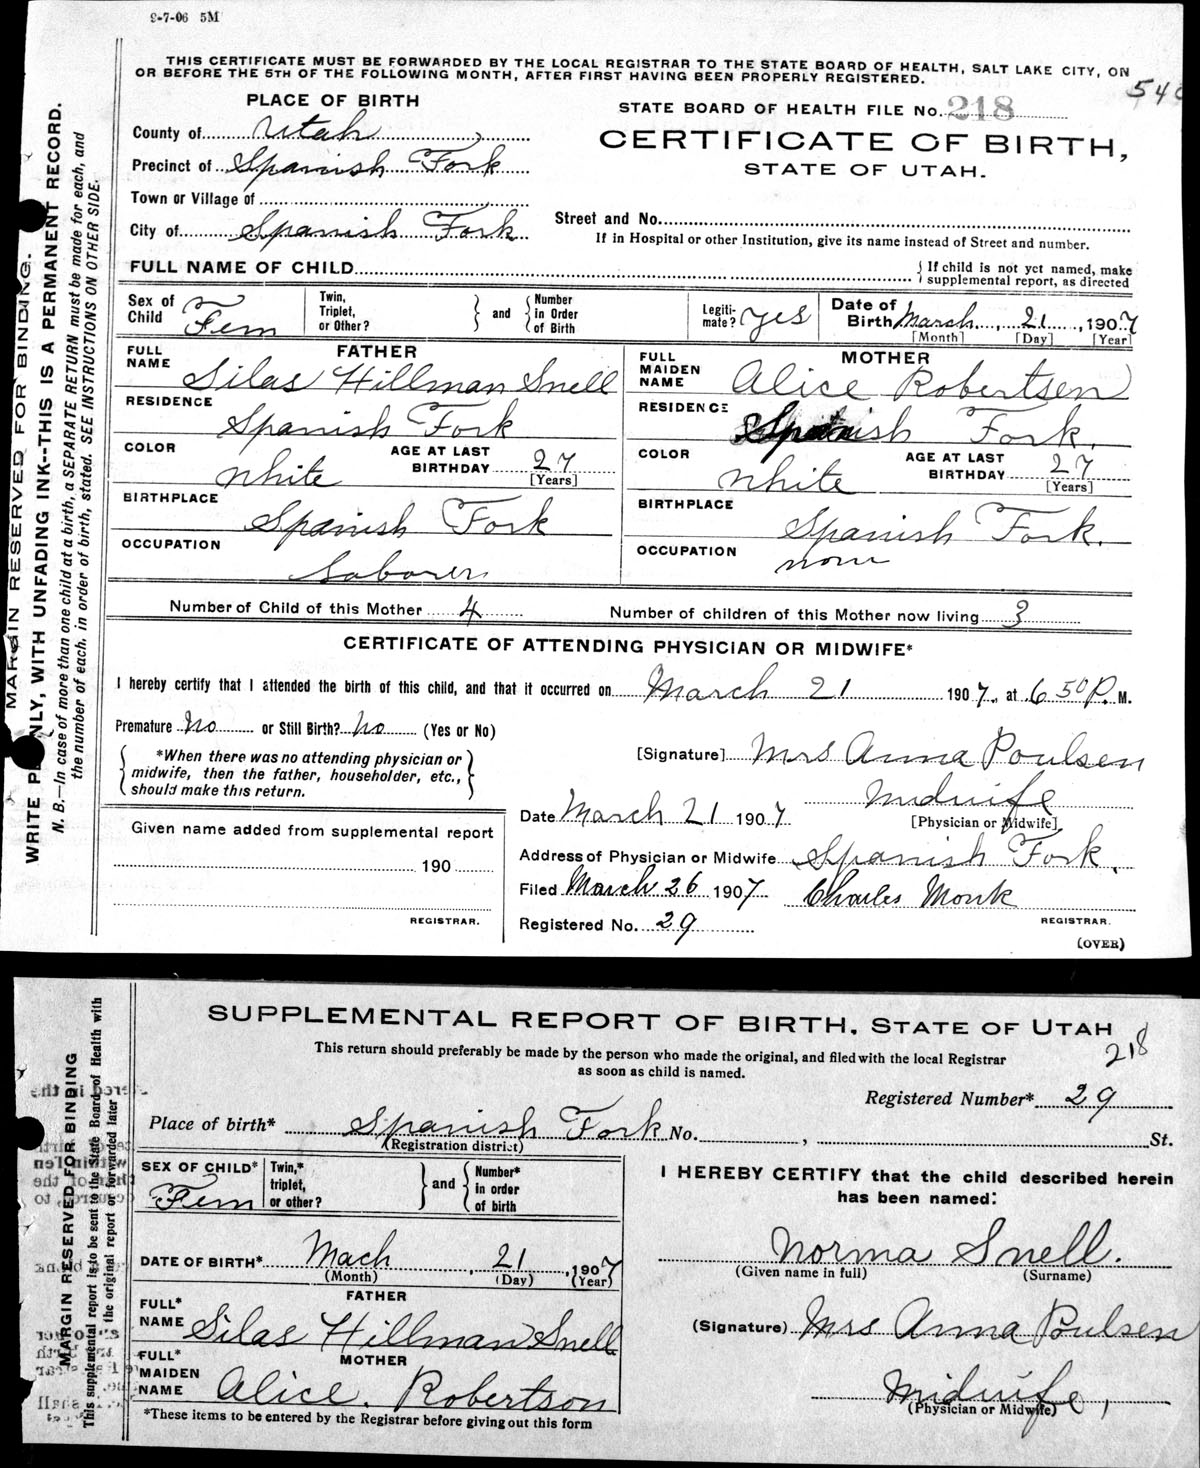 9-7-06 5M
THIS CERTIFICATE MUST BE FORWARDED BY THE LOCAL REGISTRAR TO THE STATE BOARD OF HEALTH, SALT LAKE CITY, ON
OR BEFORE THE 5TH OF THE FOLLOWING MONTH, AFTER FIRST HAVING BEEN PROPERLY REGISTERED.
PLACE OF BIRTH
STATE BOARD OF HEALTH FILE No. 218
County of Utah
CERTIFICATE OF BIRTH,
Precinct of Spanish Fork
STATE OF UTAH.
Town or Village of
City of Spanish Fork
Street and No.
If in Hospital or other Institution, give its name instead of Street and number.
FULL NAME OF CHILD
If child is not yet named, make
supplemental report, as directed
Sex of Child Fem
Twin, Triplet, or Other?
and
Number in Order of Birth
Legiti-mate? yes
Date of Birth March 21, 1907
[Month] [Day] [Year]
FATHER
FULL NAME Silas Hillman Snell
RESIDENCE Spanish Fork
COLOR White
AGE AT LAST BIRTHDAY 27
[Years]
BIRTHPLACE Spanish Fork
OCCUPATION Laborer
MOTHER
FULL MAIDEN NAME Alice Robertsen
RESIDENCE Spanish Fork.
COLOR White
AGE AT LAST BIRTHDAY 27
[Years]
BIRTHPLACE Spanish Fork.
OCCUPATION
Number of Child of this Mother 4
Number of children of this Mother now living 3
CERTIFICATE OF ATTENDING PHYSICIAN OR MIDWIFE*
I hereby certify that I attended the birth of this child, and that it occurred on March 21 1907, at 6 50 P. M.
Premature No or Still Birth? No (Yes or No)
*When there was no attending physician or
midwife, then the father, householder, etc.,
should make this return.
[Signature] Mrs Anna Poulsen
Midwife
[Physician or Midwife]
Date March 21 1907
Given name added from supplemental report
190
REGISTRAR.
Address of Physician or Midwife Spanish Fork,
Filed March 26 1907 Charles Monk
REGISTRAR.
Registered No. 29
(OVER)
MARGIN RESERVED FOR BINDING.
WRITE PLAINLY, WITH UNFADING INK--THIS IS A PERMANENT RECORD.
N. B.—In case of more than one child at a birth, a SEPARATE RETURN must be made for each, and
the number of each, in order of birth, stated. SEE INSTRUCTIONS ON OTHER SIDE.
SUPPLEMENTAL REPORT OF BIRTH, STATE OF UTAH
218
This return should preferably be made by the person who made the original, and filed with the local Registrar
as soon as child is named.
Registered Number* 29
Place of birth* Spanish Fork No. , St.
(Registration district)
SEX OF CHILD* Fem
Twin,* triplet, or other?
and
Number* in order of birth
DATE OF BIRTH* Mach 21, 1907
(Month) (Day) (Year)
FATHER
FULL* NAME Silas Hillman Snell
MOTHER
FULL* MAIDEN NAME Alice. Robertson
*These items to be entered by the Registrar before giving out this form
I HEREBY CERTIFY that the child described herein
has been named:
Norma Snell.
(Given name in full) (Surname)
(Signature) Mrs Anna Poulsen
Midwife,
(Physician or Midwife)
MARGIN RESERVED FOR BINDING
This supplemental report is to be sent to the State Board of Health with
the original report or forwarded later